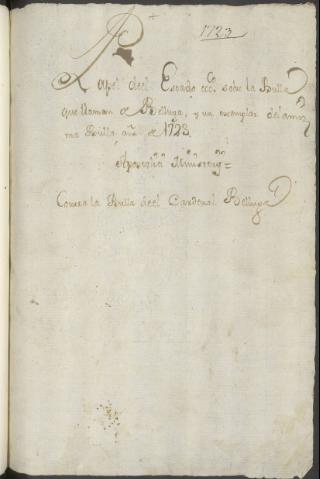 1723
Papel del Estado ecc.º sobre la Bulla
que llaman de Belluga, y un exemplar de la mis
ma Bulla, año de 1723.
Apostolici Ministerij =
Contra la Bulla del Cardenal Belluga